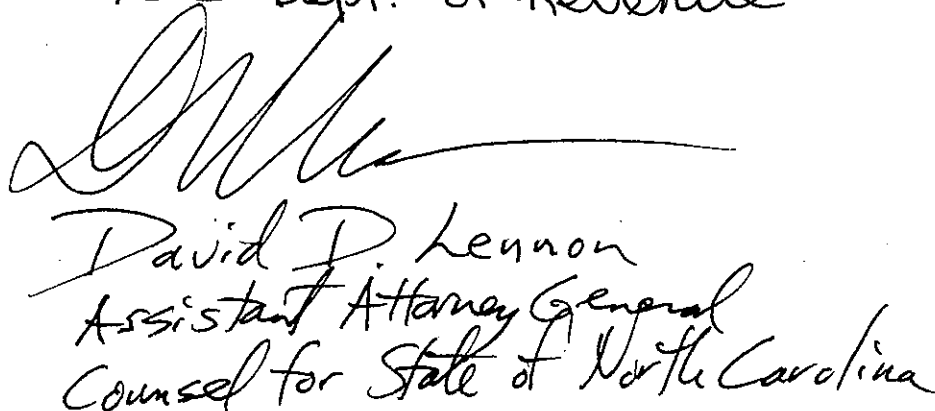 Dept. of Revenue
David D. Lennon
Assistant Attorney General
Counsel for State of North Carolina